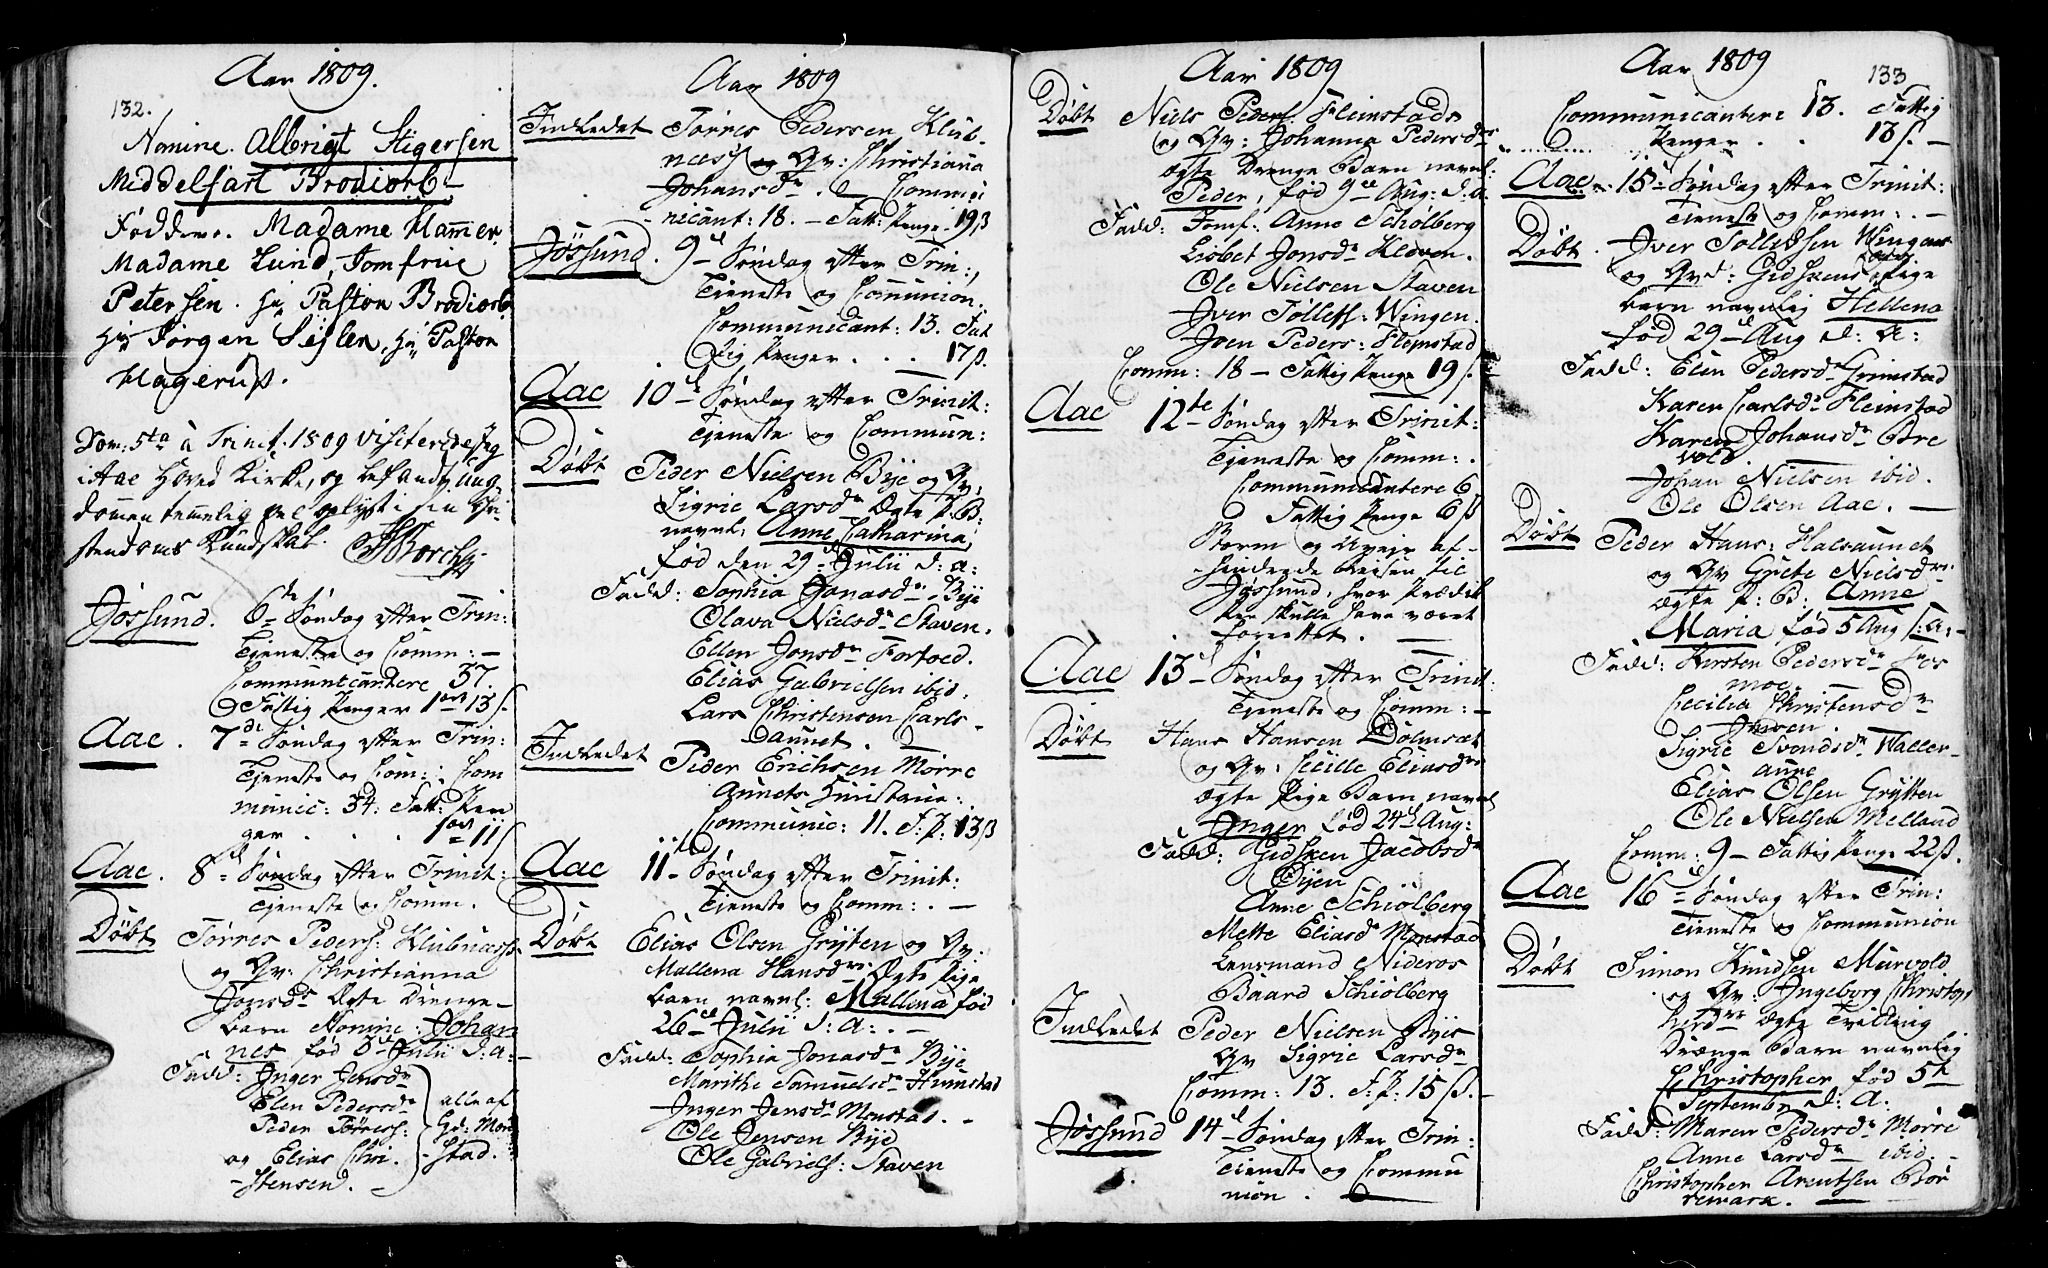 Aar 1809.
132.
Nomine. Albrigt Stigersen
Middelfart Brodiorb
Faddere. Madame Hamer
Madame Lund, Jomfrue
Petersen. Hr Pastor Brodiorb
Hr Jörgen Sislen, Hr Pastor
Hagerup.
Dom: 5ta a Trinit. 1809 visiterede jeg
i Aae Hoved Kirke, og befandt Ung
domen temelig vel oplyst i sin Chri
stendoms Kundskab.
Jössund. 6te Söndag efter Trin:
Tieneste og Comm: —
Communicantere 37.
Fattig Penger 1 ort 13 s.
Aac. 7de Söndag efter Trin:
Tieneste og Com: Com
munic: 34: Fatt: Pen
ger . . . 1 ort 11 s
Aac. 8d Söndag efter Trinit:
Tieneste og Comm.
Döbt Törres Peders: Klubnæss
og Qv: Christianna
Jonsdr Ægte Drenge
barn Nomine: Johan
nes fød 3d Julii d: a: —
Fadd: Inger Jensdr
Elen Pedersdr
Peder Törress:
og Elias Chri
stensen.
alle af
Gd: Mon
stad.
Aar 1809
Indledet Törres Pedersen Klub
næss og Qv: Christiana
Johansdr. — Commu
nicant: 18. — Fatt: Penge 19 β
Jössund. 9d Söndag efter Trin:
Tieneste og Communion.
Communicant: 13. Fat
tig Penger . . . 17 β.
Aac 10d Söndag efter Trinit:
Tieneste og Commun:
Döbt Peder Nielsen Bye og Qv:
Sigric Larsdr Ægte P: B:
navnl: Anne Catharina
fød den 29d Julii d: a:
Fadd: Sophia Jonasdr Bye
Olava Nielsdr Staven.
Ellen Jonsdr Fortoed.
Elias Gabrielsen ibid.
Lars Christensen Carls
aunet.
Indledet Peder Erichsen Mörre
aunets Hustrue.
Communic: 11. F: P: 13 β
Aac 11d Söndag efter Trinit:
Tieneste og Comm: . —
Döbt Elias Olsen Grÿten og Qv:
Mallena Hansdr Ægte Pige
barn navnl: Mallena fød
26d Julii d: a: . —
Fadd: Sophia Jonasdr Bÿe
Marithe Samuelsdr Humstad
Inger Jensdr Monstad. —
Ole Jensen Bÿe
Ole Gabriels: Staven
Aar 1809
Döbt Niels Peders: Fleinstads
og Qv: Johanna Pedersdrs
ægte Drenge Barn navnl:
Peder, fød 9de Aug: d: a.
Fadd: Jomf: Anne Schölberg
Lisbet Jonsdr Kloven.
Ole Nielsen Staven
Iver Tollefs: Wingen.
Joen Peders: Flemstad
Comm: 18 — Fattig Penge 19 s.
Aac 12te Söndag efter Trinit:
Tieneste og Comm: .
Communicantere 6
Fattig Penge 6 β
Storm og Uveir af
hindrede Reisen til
Jössund, hvor Prædik
ken skulle have været
forrettet.
Aac 13d Söndag efter Trinit:
Tieneste og Comm: —
Döbt Hans Hansen Dolmsæt
og Qv: Cecille Eliasdrs
Ægte Pige Barn navnl
Inger fød 24d Aug:
Fadd: Gidsken Jacobsdr
Oÿen
Anne Schiölberg
Mette Eliasdr Monstad
Lensmand Nideros
Baard Schiölberg
Indledet Peder Nielsen Byis
Qv Sigric Larsdr
Comm: 13. F: P: 15 β.
Jössund 14d Söndag efter Trin:
Tieneste og Commu
nion.
Aar 1809
133
Communicantere 13. Fattig
Penger . . 13 s.
Aac 15d Söndag efter Trinit:
Tieneste og Comm: . —
Döbt. Iver Tollefsen Wingens
og Qvd: Gidskens Pige
barn navnlig Hellena
fød 29d Aug d: a:
Fadd: Elen Pedersdr Grimstad
Karen Carlsdr Fleinstad
Karen Johansdr Bre
vold
Johan Nielsen ibid.
Ole Olsen Aae. —
Döbt Peder Hans: Halsaunet
og Qv Grete Nielsdrs
Ægte P: B: Anne
Maria fød 5 Aug d: a: —
Fadd: Kirsten Pedersdr Fos
moe.
Cecilia Christensdr
Sigric Svendsdr Waller
aune
Elias Olsen Grÿtten
Ole Nielsen Melland
Comm: 9 — Fattig Penge 22 β.
Aac 16d Söndag efter Trin:
Tieneste og Communion
Döbt Simon Knudsen Murvold
og Qv: Ingeborg Christop
hersdrs Ægte Tvilling
Drænge Barn navnlig
Christopher fød 5te
Septembr d: A:
Fadd: Maren Pedersdr Mörre
Anne Larsdr ibid.
Christopher Arentsen Bör
remark.